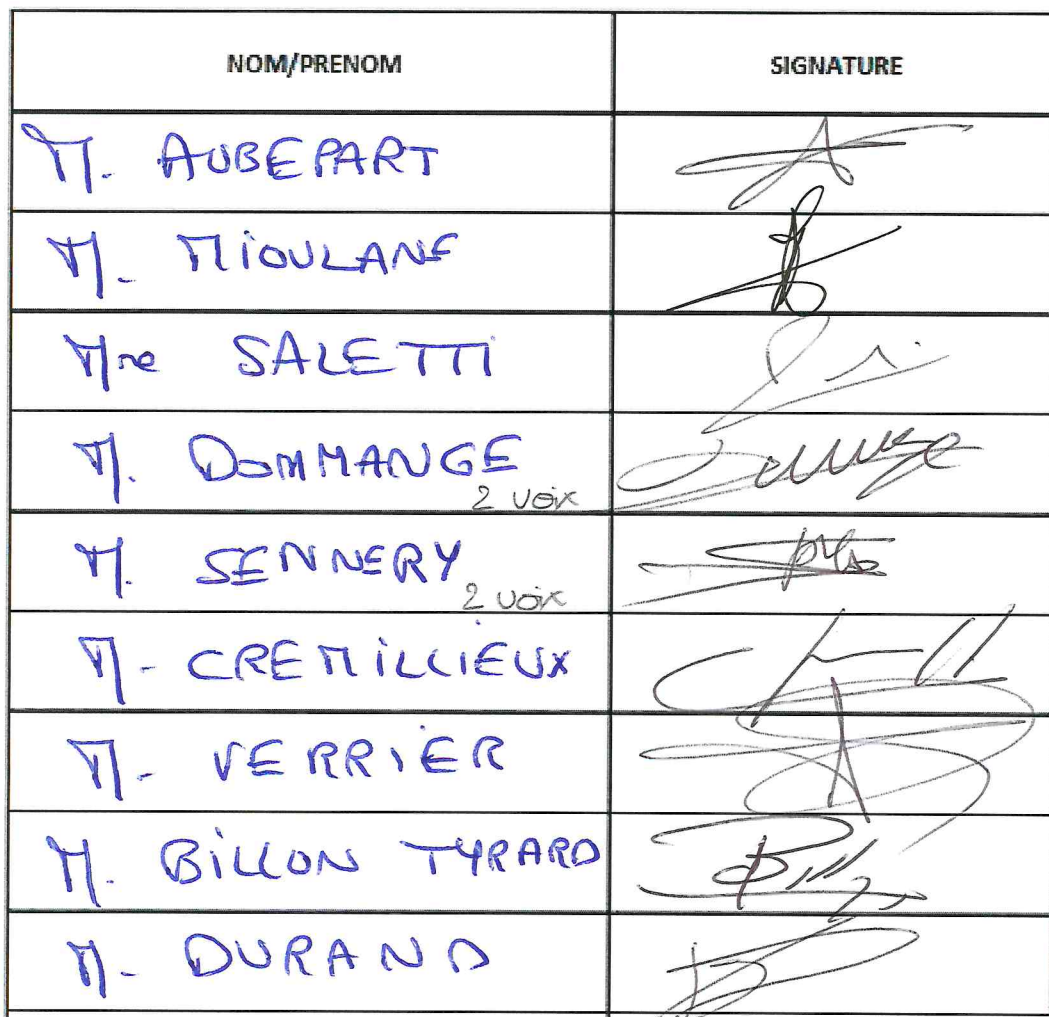 NOM/PRENOM SIGNATURE
M. AUBEPART
M. MIOULANE
Mme SALETTI
M. DOMMANGE
2 voix
M. SENNERY
2 voix
M. CREMILLIEUX
M. VERRIER
M. BILLON TYRARD
M. DURAND